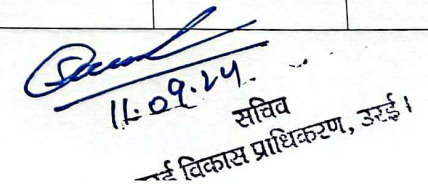 11.09.24.
सचिव
विकास प्राधिकरण, उरई।